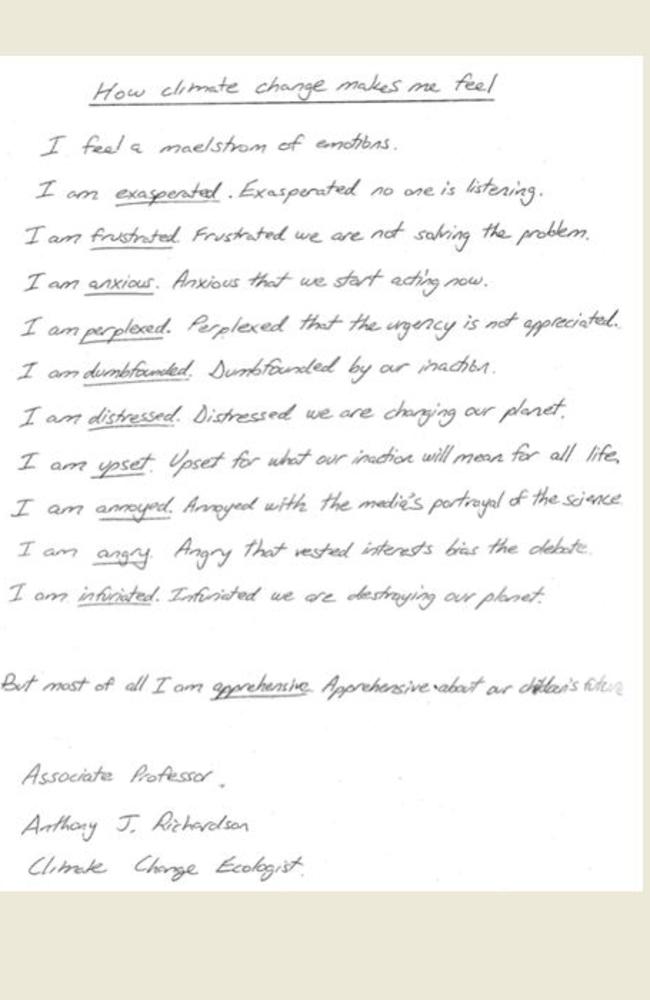 How climate change makes me feel
I feel a maelstrom of emotions.
I am exasperated. Exasperated no one is listening.
I am frustrated. Frustrated we are not solving the problem.
I am anxious. Anxious that we start acting now.
I am perplexed. Perplexed that the urgency is not appreciated.
I am dumbfounded. Dumbfounded by our inaction.
I am distressed. Distressed we are changing our planet.
I am upset. Upset for what our inaction will mean for all life.
I am annoyed. Annoyed with the media's portrayal of the science.
I am angry. Angry that vested interests bias the debate.
I am infuriated. Infuriated we are destroying our planet.
But most of all I am apprehensive. Apprehensive about our children's future
Associate Professor.
Anthony J. Richardson
Climate Change Ecologist.